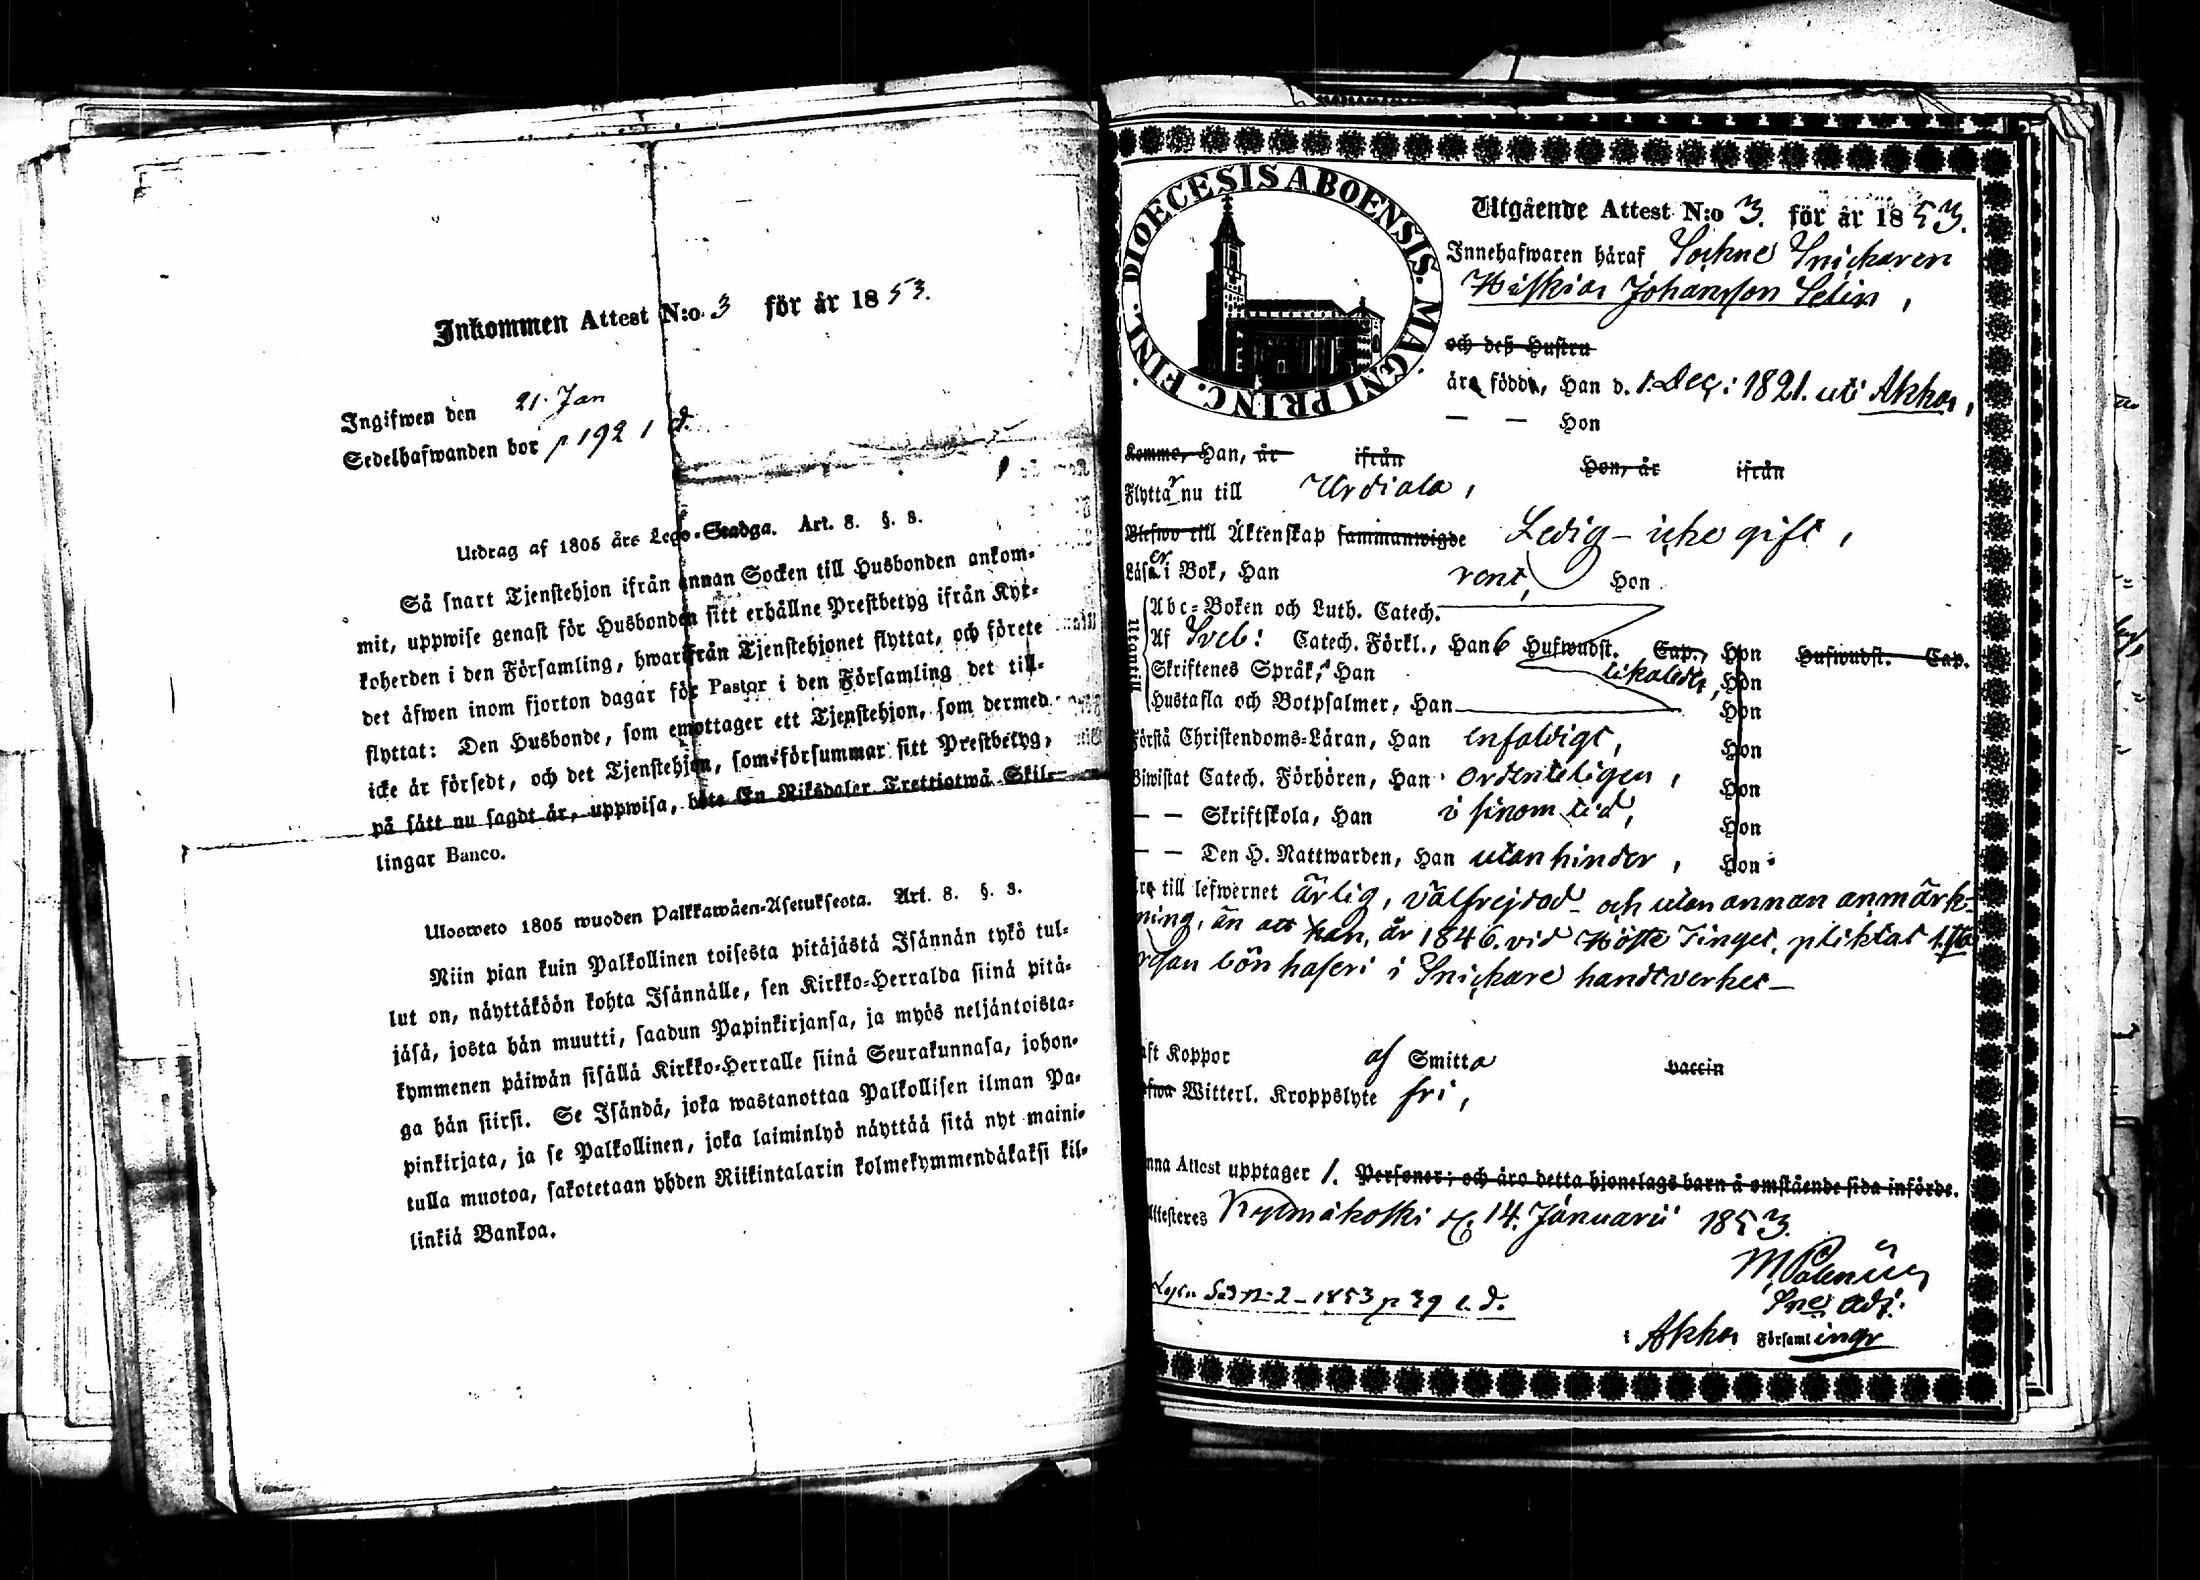 Inkommen Attest N:o 3 för år 1853.
Ingifwen den 21. Jan
Sedelhafwanden bor p 192
Utdrag af 1805 års Lego-Stadga. Art. 8. §. 8.
Så snart Tjenstehjon ifrån annan Socken till Husbonden ankom-
mit, uppwise genast för Husbonden sitt erhållne Prestbetyg ifrån Kyr-
koherden i den Församling, hwarifrån Tjenstehjonet flyttat, och förete
det äfwen inom fjorton dagar för Pastor i den Församling det till-
flyttat: Den Husbonde, som emottager ett Tjenstehjon, som dermed
icke är försedt, och det Tjenstehjon, som försummar sitt Prestbetyg,
på sätt nu sagdt är, uppwisa, böte En Riksdaler Trettiotwå Skil-
lingar Banco.
Ulosweto 1805 wuoden Palkkawäen-Asetuksesta. Art. 8. §. 8.
Niin pian kuin Palkollinen toisesta pitäjästä Isännän tykö tul-
lut on, näyttäköön kohta Isännälle, sen Kirkko-Herralda siinä pitä-
jäsä, josta hän muutti, saadun Papinkirjansa, ja myös neljäntoista-
kymmenen päiwän sisällä Kirkko-Herralle siinä Seurakunnasa, johon-
ga hän siirsi. Se Isändä, joka wastanottaa Palkollisen ilman Pa-
pinkirjata, ja se Palkollinen, joka laiminlyö näyttää sitä nyt maini-
tulla muotoa, sakotetaan yhden Riikintalarin kolmekymmendäkaksi kil-
linkiä Bankoa.
FINL. DIOECESIS ABOENSIS. MAGNI PRINC.
Utgående Attest N:o 3. för år 1853.
Innehafwaren häraf Sockne Snickaren
Hiskias Johansson Selin,
och deß Hustru
äro födde, Han d. 1 Dec: 1821. uti Akkas,
— — Hon
Komme, Han, år ifrån Hon, år ifrån
Flyttar nu till Urdiala,
Blefwo till Äktenskap sammanwigde Ledig – icke gift,
Läser i Bok, Han rent, Hon
Utantill
Abc-Boken och Luth. Catech.
Af Sveb: Catech. Förkl., Han 6 Hufwudst. Cap., Hon Hufwudst. Cap.
Skriftenes Språk, Han likaledes, Hon
Hustafla och Botpsalmer, Han Hon
Förstå Christendoms-Läran, Han enfaldigt, Hon
Biwistat Catech. Förhören, Han ordenteligen, Hon
— — Skriftskola, Han i sinom tid, Hon
— — Den H. Nattwarden, Han utan hinder, Hon
till lefwernet ärlig, välfrejdad och utan annan anmärk-
ning, än att han, år 1846. vid Höste Tinget, pliktat
bönhaseri i Snickare handtverket –
haft Koppor af Smitta vaccin
Witterl. Kroppslyte fri,
Attest upptager 1. Personer; och äro detta hjonelags barn å omstående sida införde.
Attesteres Kylmäkoski d. 14. Januarii 1853.
Adj:
1853 p 39
i Akkas Församlingr